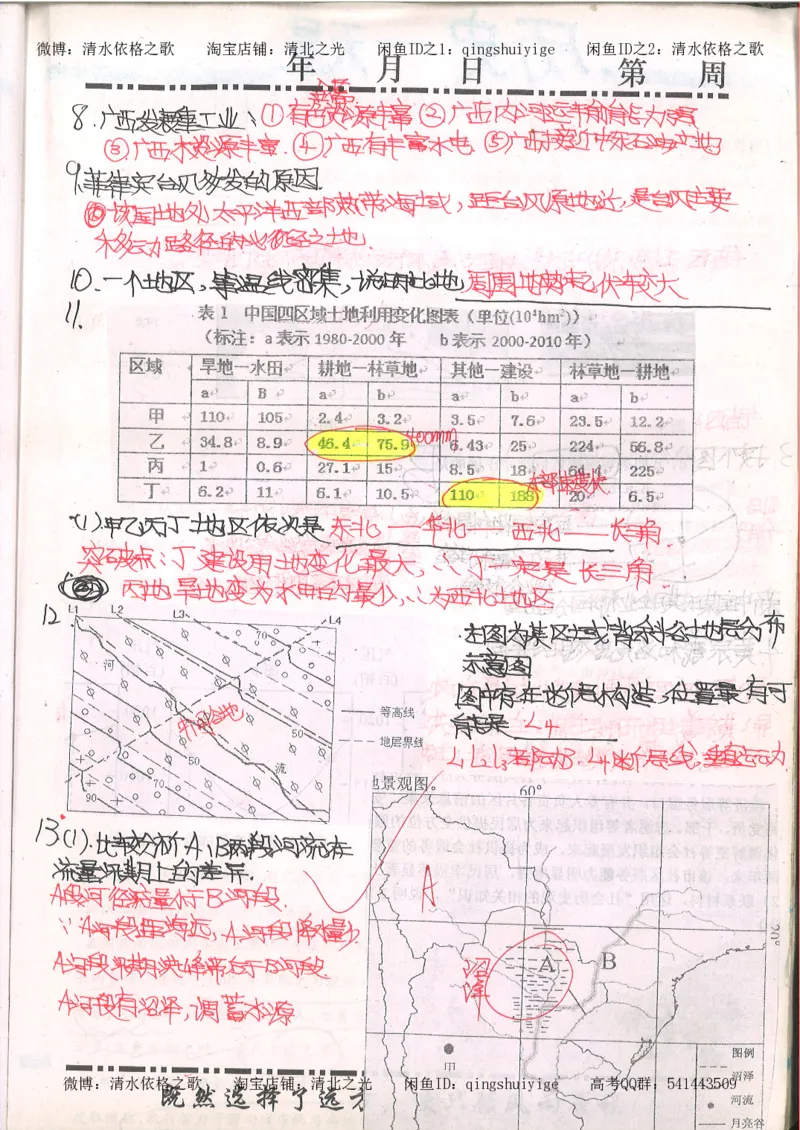 微博：清水依格之歌 淘宝店铺：清北之光 闲鱼ID之1：qingshuiyige 闲鱼ID之2：清水依格之歌
年 月 日 第 周
8.广西发展 工业：①有色 资源丰富②广西内河运输
③广西水资源丰富.④广西有丰富水电 ⑤广西
9.菲律宾台风多发的原因.
该国地处太平洋西部热带海域，距台风源地近，是台风主要
移动路径的必经之地.
10.一个地区，等温线密集，说明此地，周围地势起伏变大
11.
表1 中国四区域土地利用变化图表（单位(10⁴hm²)）
（标注：a表示1980-2000年 b表示2000-2010年）
区域 旱地—水田 耕地—林草地 其他—建设 林草地—耕地
a B a b a b a b
甲 110 105 2.4 3.2 3.5 7.6 23.5 12.2
乙 34.8 8.9 46.4 75.9 400mm 6.43 25 224 56.8
丙 1 0.6 27.1 15 8.5 18 64.4 225
丁 6.2 11 6.1 10.5 110 188 20 6.5
(1).甲乙丙丁土地区依次是 东北——华北——西北——长三角.
突破点：丁建设用地变化最大，∴丁一定是长三角.
丙地旱地变为水田的最少，∴为西北地区
12
L1 L2 L3 L4
70
河
50
50
流
70
90
等高线
地层界线
左图为某区域背斜谷地层分布
示意图
图中存在 构造，位置最有可
能是 L4
13(1).比较分析A、B两段河流在
流量 上的差异.
A段河径流量小于B河段.
A河段汛期洪峰 于B河段.
A河段有沼泽，调蓄水源
地景观图。
60°
20°
A
沼泽
A B
甲
图例
沼泽
河流
月亮谷
微博：清水依格之歌 淘宝店铺：清北之光 闲鱼ID：qingshuiyige 高考QQ群：541443509
既然选择了远方